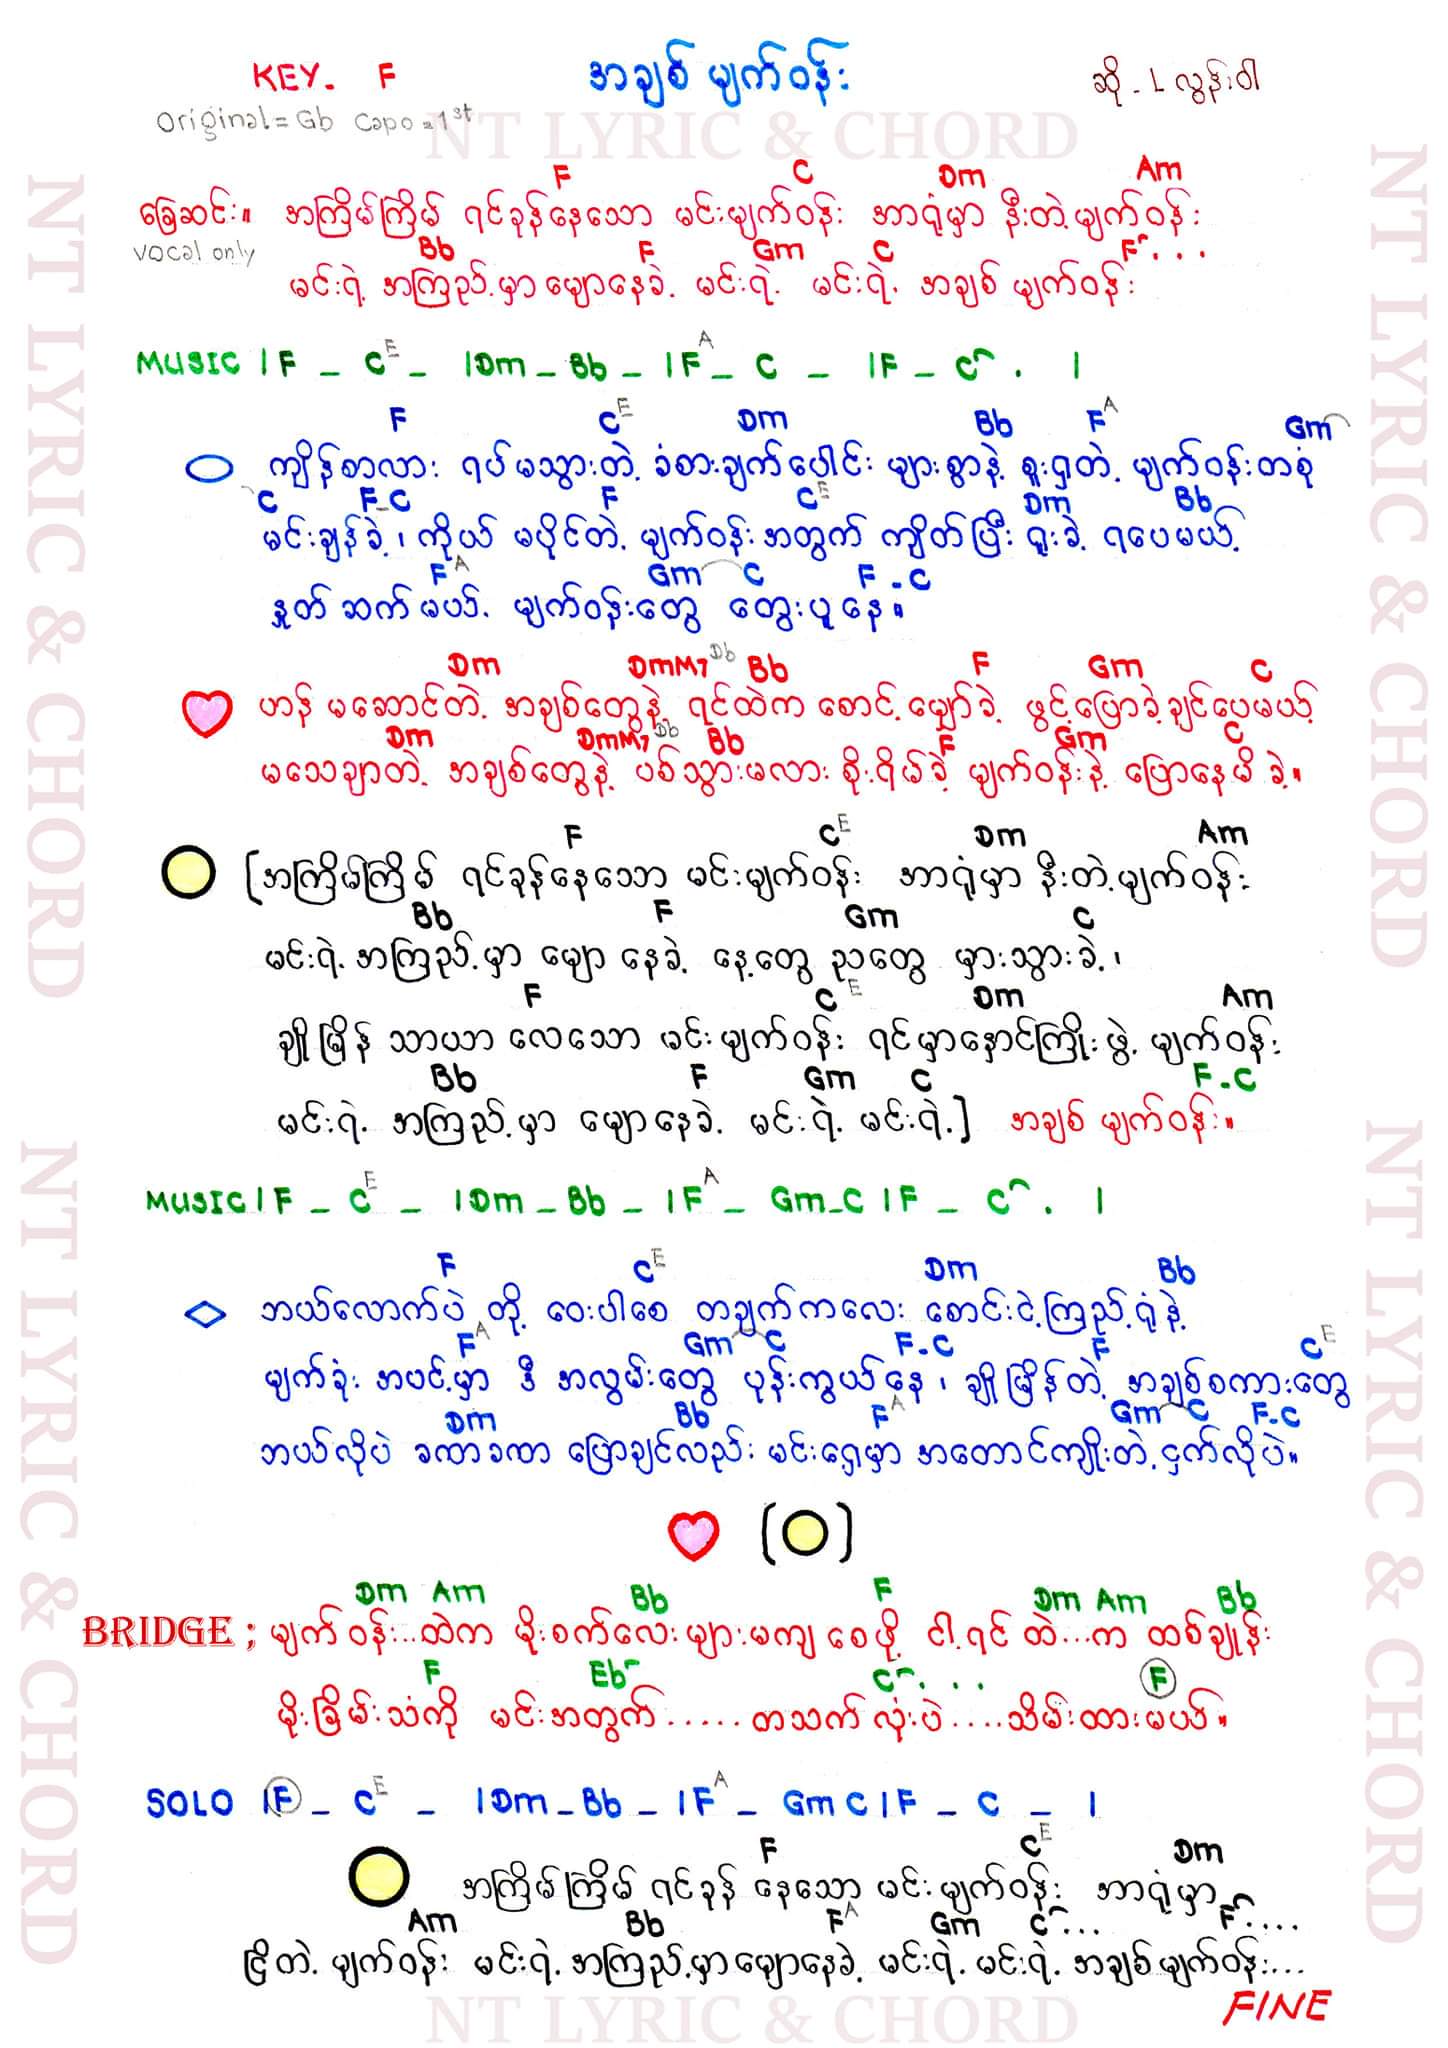 KEY. F အချစ် မျက်ဝန်း ဆို - L လွန်းဝါ
Original = Gb Capo = 1st
NT LYRIC & CHORD
F C Dm Am
ခြေဆင်း။ အကြိမ်ကြိမ် ရင်ခုန်နေသော မင်းမျက်ဝန်း အာရုံမှာ နီးတဲ့မျက်ဝန်း
vocal only Bb F Gm C F...
မင်းရဲ့ အကြည့်မှာ မျောနေခဲ့ မင်းရဲ့ မင်းရဲ့ အချစ် မျက်ဝန်း
MUSIC | F _ C E _ | Dm _ Bb _ | F A _ C _ | F _ C . |
F C E Dm Bb F A Gm
ကျိန်စာလား ရပ်မသွားတဲ့ ခံစားချက်ပေါင်း များစွာနဲ့ စူးရှတဲ့ မျက်ဝန်းတစုံ
C F-C F C E Dm Bb
မင်းချန်ခဲ့၊ ကိုယ် မပိုင်တဲ့ မျက်ဝန်းအတွက် ကျိတ်ပြီး ရူးခဲ့ ရပေမယ့်
F A Gm C F - C
နှုတ်ဆက်မယ့် မျက်ဝန်းတွေ တွေးပူနေ။
Dm DmM7 Db Bb F Gm C
ဟန် မဆောင်တဲ့ အချစ်တွေနဲ့ ရင်ထဲက စောင့်မျှော်ခဲ့ ဖွင့်ပြောခဲ့ချင်ပေမယ့်
Dm DmM7 Db Bb F Gm C
မသေချာတဲ့ အချစ်တွေနဲ့ ပစ်သွားမလား စိုးရိမ်ခဲ့ မျက်ဝန်းနဲ့ ပြောနေမိခဲ့။
F C E Dm Am
[အကြိမ်ကြိမ် ရင်ခုန်နေသော မင်းမျက်ဝန်း အာရုံမှာ နီးတဲ့မျက်ဝန်း
Bb F Gm C
မင်းရဲ့ အကြည့်မှာ မျောနေခဲ့ နေ့တွေ ညတွေ မှားသွားခဲ့၊
F C E Dm Am
ချိုမြိန် သာယာ လေသော မင်းမျက်ဝန်း ရင်မှာနှောင်ကြိုးဖွဲ့ မျက်ဝန်း
Bb F Gm C F - C
မင်းရဲ့ အကြည့်မှာ မျောနေခဲ့ မင်းရဲ့ မင်းရဲ့] အချစ် မျက်ဝန်း။
MUSIC | F _ C E _ | Dm _ Bb _ | F A _ Gm _ C | F _ C . |
F C E Dm Bb
ဘယ်လောက်ပဲ တို့ ဝေးပါစေ တချက်ကလေး စောင်းငဲ့ကြည့်ရုံနဲ့
F A Gm C F - C F C E
မျက်ခုံး အပင့်မှာ ဒီ အလွမ်းတွေ ပုန်းကွယ်နေ၊ ချိုမြိန်တဲ့ အချစ်စကားတွေ
Dm Bb F A Gm C F-C
ဘယ်လိုပဲ ခဏခဏ ပြောချင်လည်း မင်းရှေ့မှာ အတောင်ကျိုးတဲ့ငှက်လိုပဲ။
[ ]
Dm Am Bb F Dm Am Bb
BRIDGE ; မျက်ဝန်း...ထဲက မိုးစက်လေးများမကျစေဖို့ ငါ့ရင်ထဲ...က ထစ်ချုန်း
F Eb C . . . F
မိုးခြိမ်းသံကို မင်းအတွက်.....တသက်လုံးပဲ....သိမ်းထားမယ်။
SOLO | F _ C E _ | Dm _ Bb _ | F A _ Gm C | F _ C _ |
F C E Dm
အကြိမ်ကြိမ် ရင်ခုန်နေသော မင်းမျက်ဝန်း အာရုံမှာ
Am Bb F A Gm C ... F ....
ငြိတဲ့ မျက်ဝန်း မင်းရဲ့ အကြည့်မှာမျောနေခဲ့ မင်းရဲ့ မင်းရဲ့ အချစ်မျက်ဝန်း...
FINE
NT LYRIC & CHORD
NT LYRIC & CHORD
NT LYRIC & CHORD
NT LYRIC & CHORD
NT LYRIC & CHORD